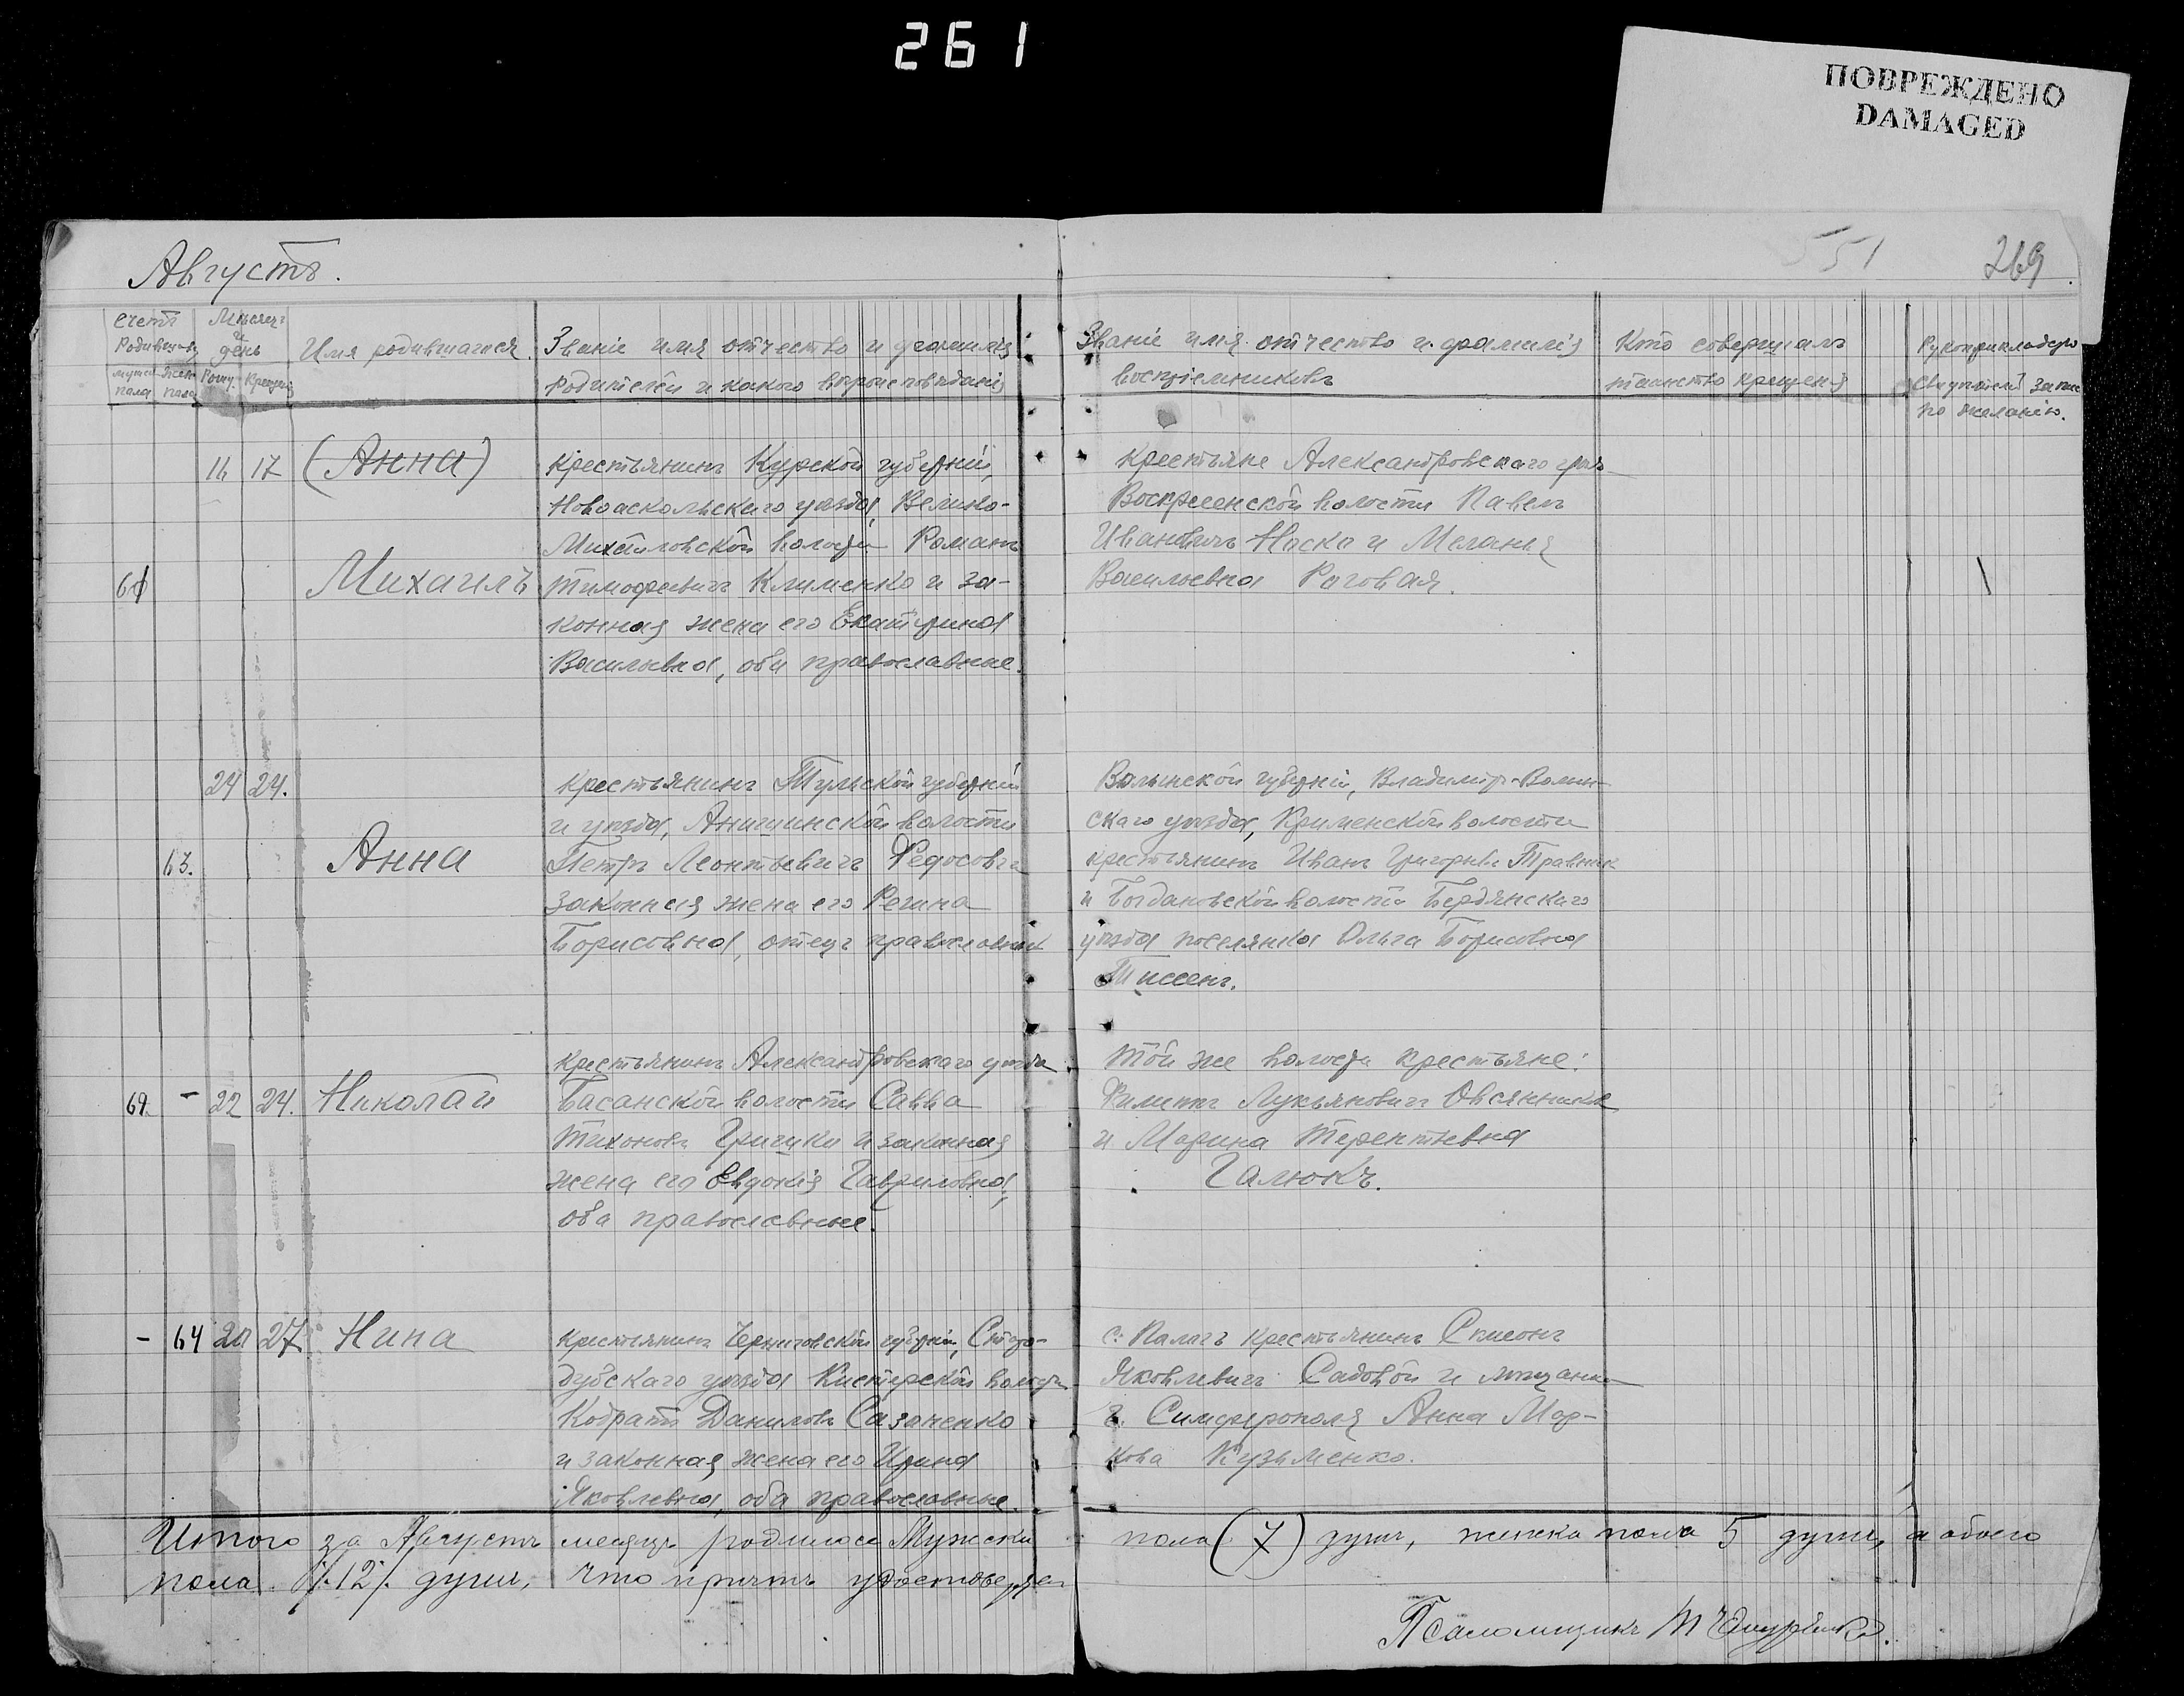 261
ПОВРЕЖДЕНО
DAMAGED
551
269
Августъ.
Счетъ
Родившихся
мужск. пола
женск. пола
Мѣсяцъ
и
день
Рожд.
Крещенія
Имя родившагося.
Званіе имя отчество и фамилія
Родителей и какого вѣроисповѣданія
Званіе имя отчество и фамилія
воспріемниковъ
Кто совершалъ
таинство крещенія
Рукоприкладство
свидѣтелей
по желанію.
61
16 17 (Анна)
Михаилъ
Крестьянинъ Курской губерніи,
Новооскольскаго уѣзда, Велико-
Михайловской волости Романъ
Тимофеевичъ Клименко и за-
конная жена его Екатерина
Васильевна, оба православные.
Крестьяне Александровскаго уѣзд
Воскресенской волости Павелъ
Ивановичъ Носко и Меланія
Васильевна Роговая.
24 24.
63.
Анна
Крестьянинъ Тульской губерніи
и уѣзда, Анишинской волости
Петръ Леонтьевичъ Федосовъ
законная жена его Регина
Борисовна, отецъ православный
Волынской губерніи, Владимір-Волын-
скаго уѣзда, Крименской волости
крестьянинъ Иванъ Григорьев Травник
и Богдановской волости Бердянскаго
уѣзда поселянка Ольга Борисовна
Тиссенъ.
69. - 22 24. Николай
Крестьянинъ Александровскаго уѣзда
Басанской волости Савва
Тихоновъ Грицуки и законная
жена его Евдокія Гавриловна,
оба православные.
Той же волости крестьяне:
Филиппъ Лукьяновичъ Овсянников
и Марина Терентьевна
Галюкъ.
- 64 20 27. Нина
Крестьянинъ Черниговской губерніи, Старо-
дубскаго уѣзда Кистерской волости
Кодратъ Даниловъ Сазоненко
и законная жена его Ирина
Яковлевна, оба православные.
с. Пологъ крестьянинъ Симеонъ
Яковлевичъ Садовой и мѣщанка
г. Симферополя Анна Мар-
кова Кузьменко.
Итого за Августъ мѣсяцъ родилось Мужска
пола (7) душъ, женска пола 5 душъ, а обоего
пола ./.12./. душъ, что причтъ удостовѣряетъ
Псаломщикъ